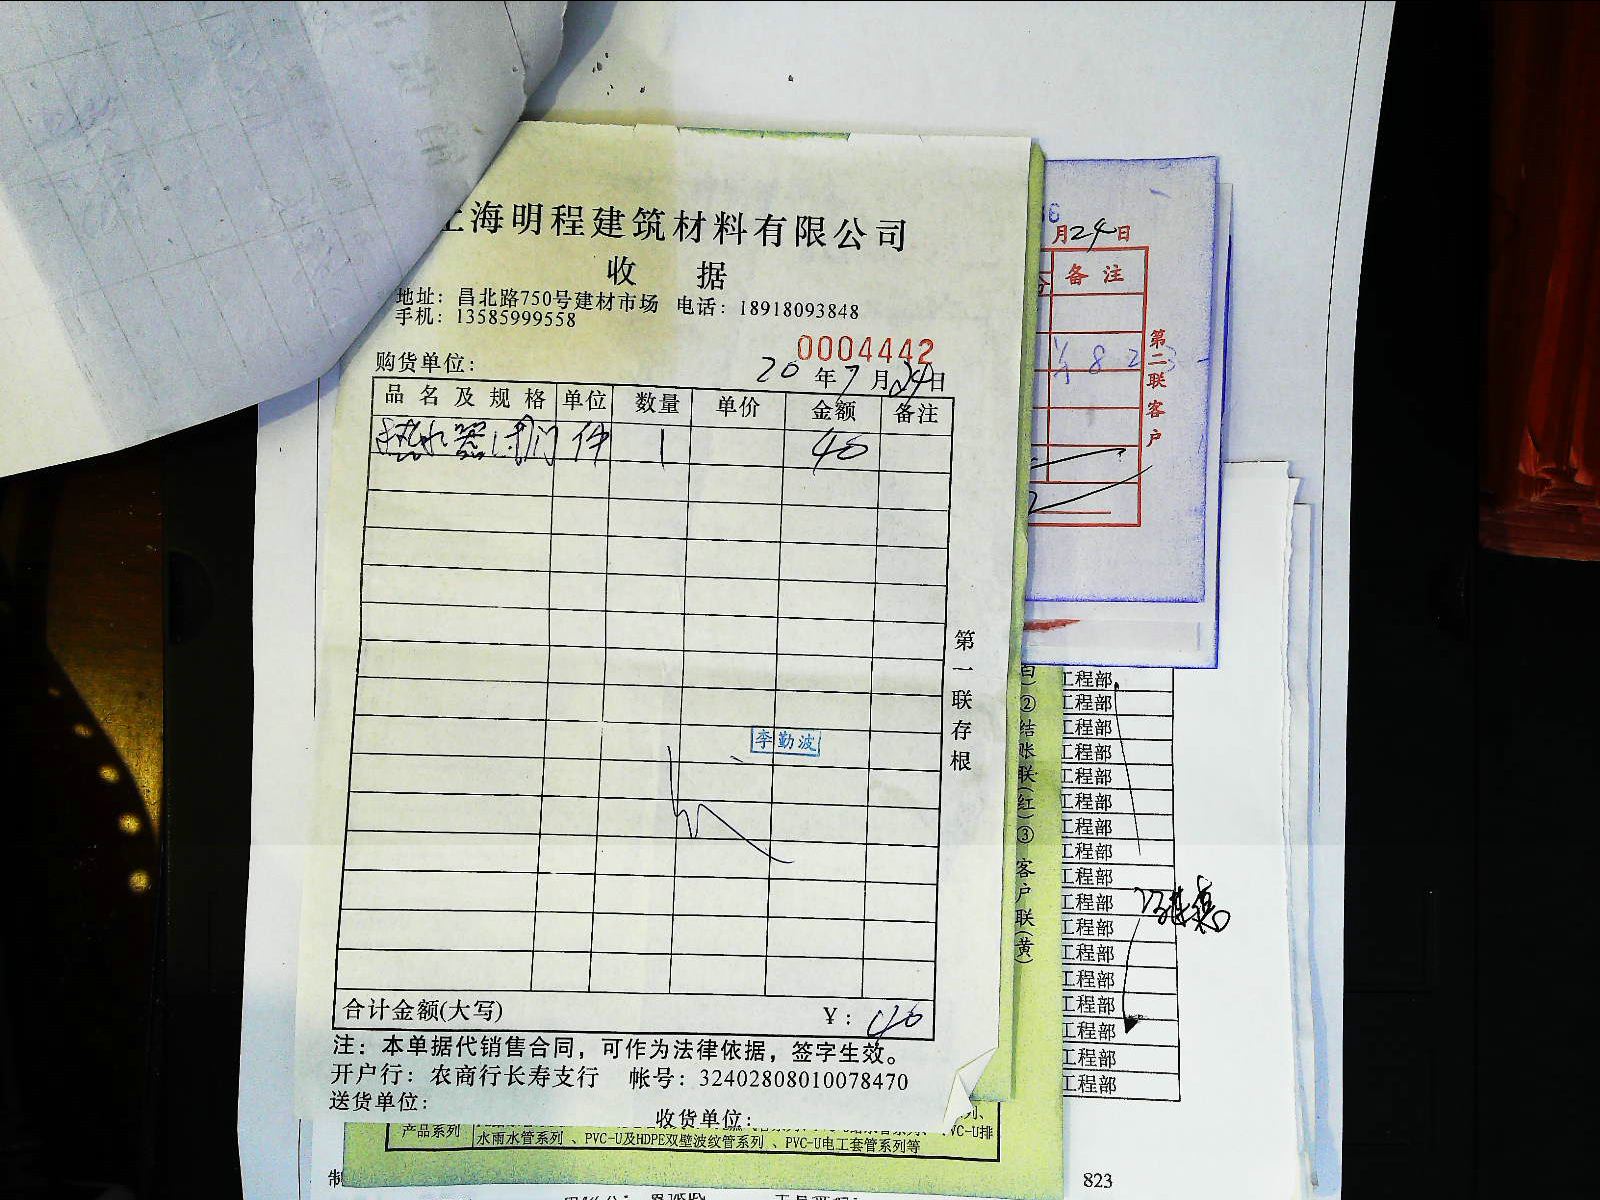 上海明程建筑材料有限公司
收 据
地址：昌北路750号建材市场 电话：18918093848
手机：13585999558
0004442
购货单位：
20 年 7 月 24 日
品 名 及 规 格 单位 数量 单价 金额 备注
热水器阀门 件 1 40
第一联存根
李勤波
合计金额(大写) ¥：40
注：本单据代销售合同，可作为法律依据，签字生效。
开户行：农商行长寿支行 帐号：32402808010078470
送货单位： 收货单位：
月24日
备 注
1 8 2 3
第二联客户
②结账联(红)③客户联(黄)
工程部
工程部
工程部
工程部
工程部
工程部
工程部
工程部
工程部
工程部
工程部
工程部
工程部
工程部
工程部
工程部
工程部
产品系列
水雨水管系列、PVC-U及HDPE双壁波纹管系列、PVC-U电工套管系列等
制
823